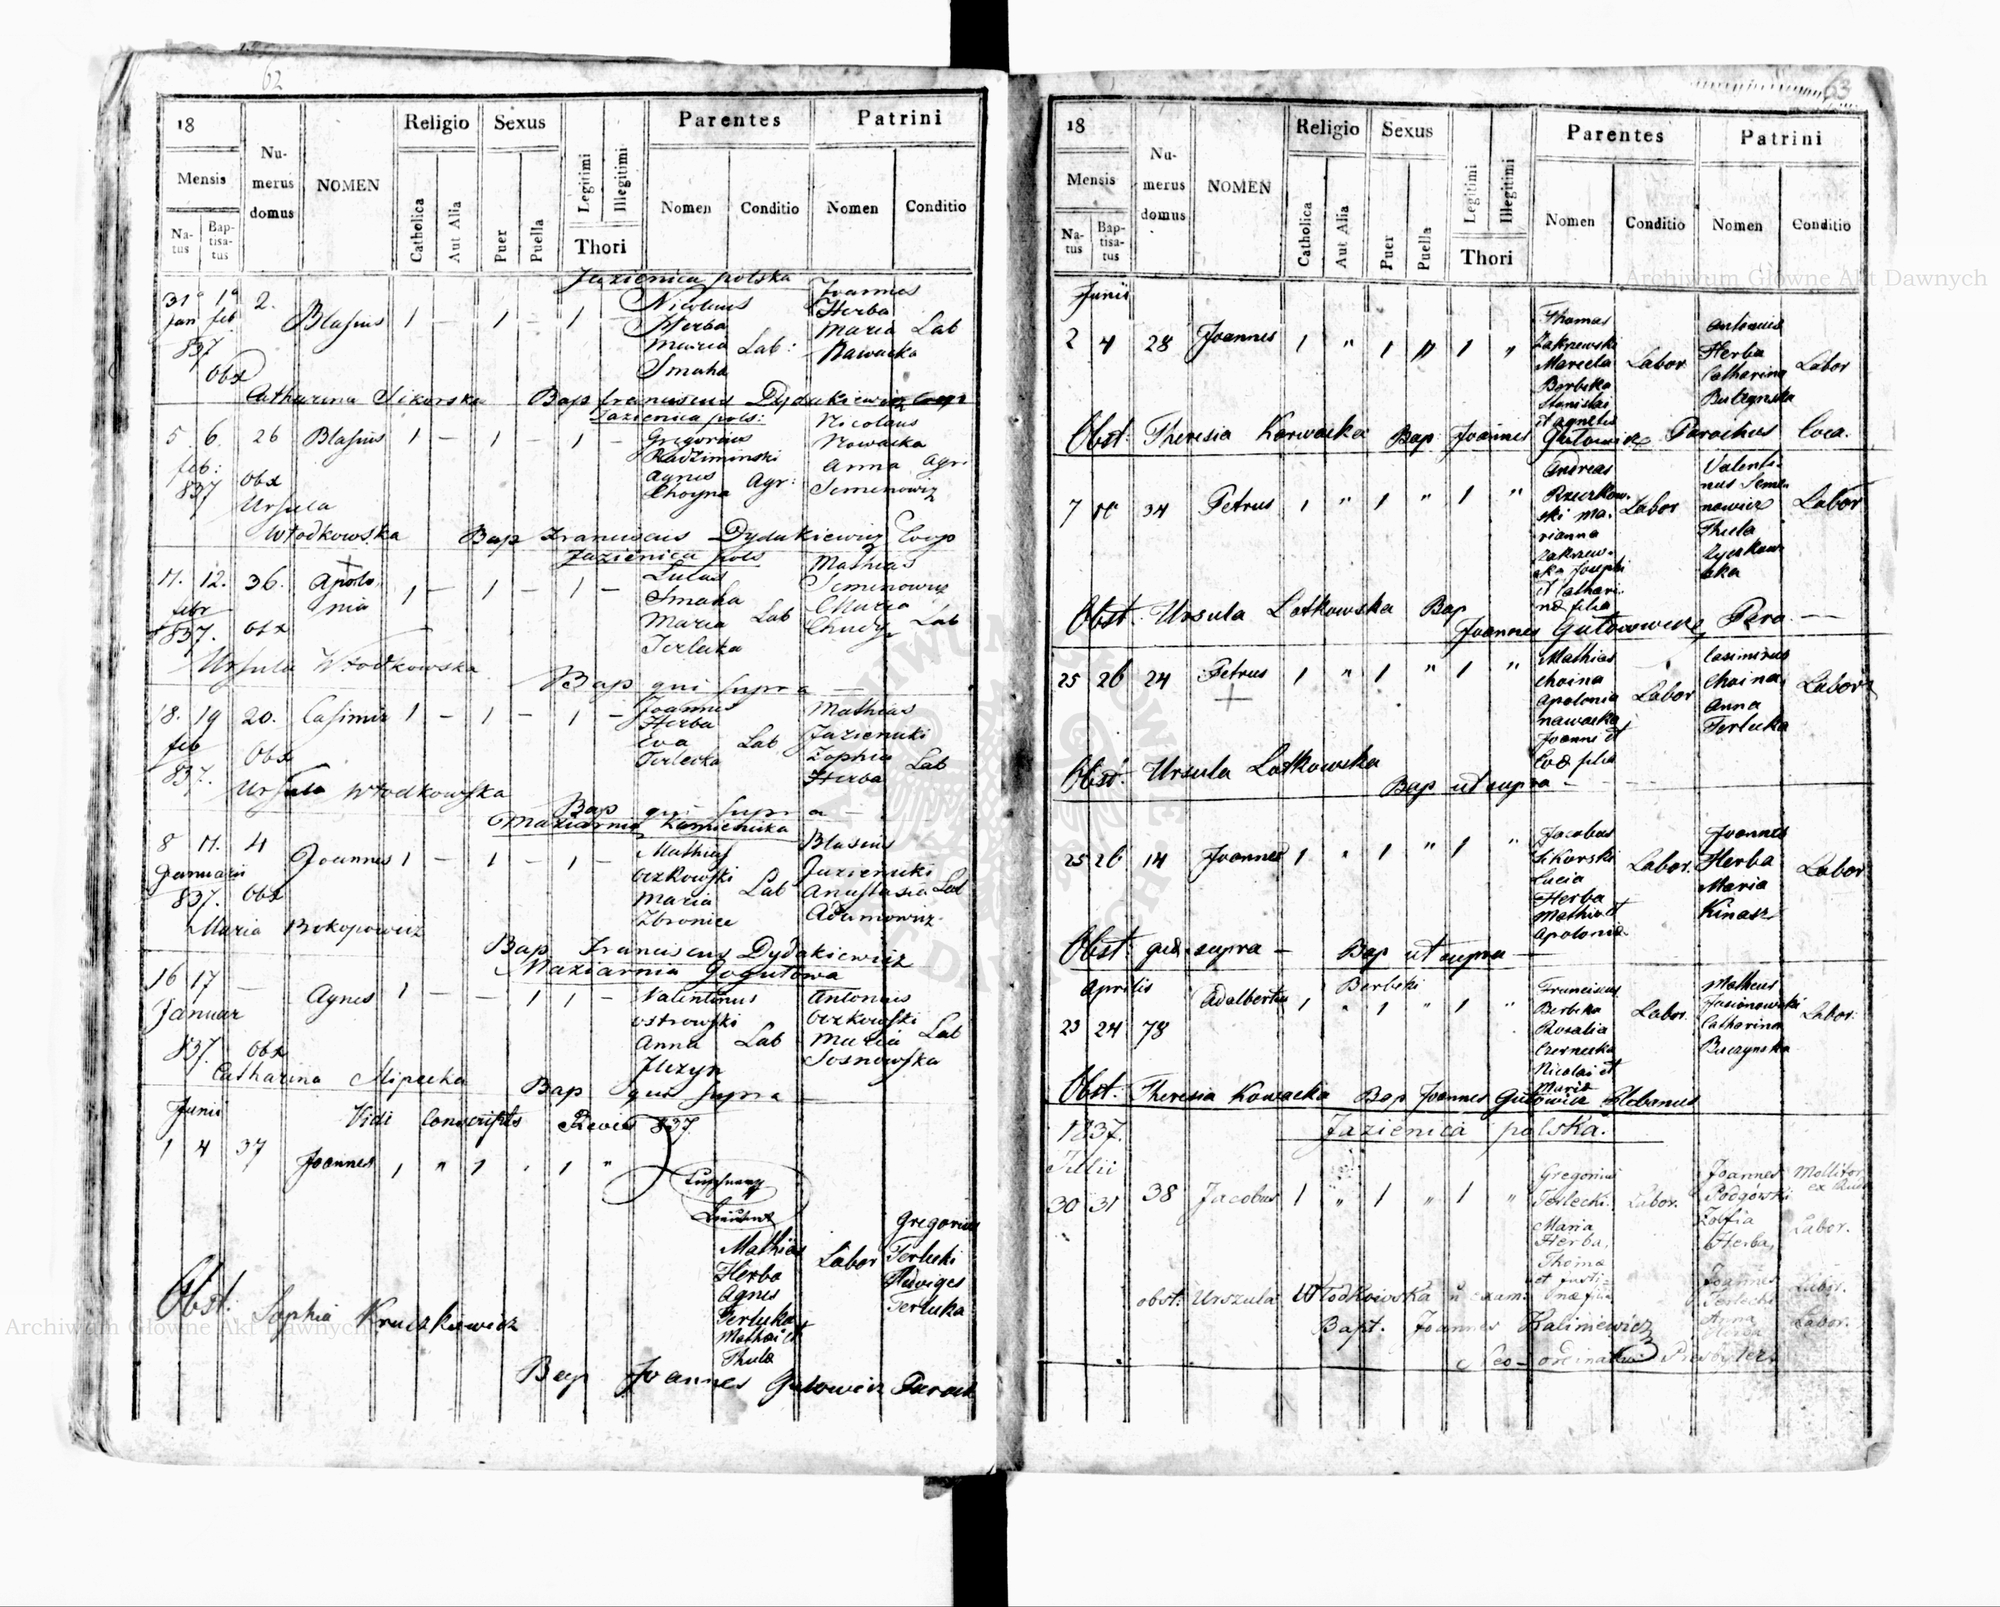 62
18
Mensis
Natus
Baptisatus
Numerus domus
NOMEN
Religio
Catholica
Aut Alia
Sexus
Puer
Puella
Legitimi
Illegitimi
Thori
Parentes
Nomen
Conditio
Patrini
Nomen
Conditio
Jazienica polska
31 1 2. Blasius 1 – 1 – 1 –
Jan feb
837
Nicolaus Herba Maria Smaha Lab:
Joannes Herba Maria Nawacka Lab
Obx Catharina Sikorska Bap Franciscus Dydakiewicz Coop
Jazienica pols:
5. 6. 26 Blasius 1 – 1 – 1 –
feb:
837
Gregorius Radziminski Agnes Choyna Agr:
Nicolaus Nowacka Anna Semenowiz Agr:
Obx Ursula Włodkowska Bap Franciscus Dydakiewicz Coop
Jazienica pols
11. 12. 36. Apolonia 1 – 1 – 1 –
febr
837.
Lucas Smaha Maria Terlecka Lab
Mathias Semenowiz Maria Chudy Lab
Obx Ursula Włodkowska
Bap qui supra –
18. 19 20. Casimir 1 – 1 – 1 –
feb
837.
Joannes Herba Eva Terlecka Lab
Mathias Jazienicki Zophia Herba Lab
Obx Ursula Włodkowska
Bap qui supra –
Maziarnia Kamienicka
8 11. 4 Joannes 1 – 1 – 1 –
Januarii
837.
Mathias Ozkowski Maria Zbronice Lab
Blasius Jazienicki Anastasia Adamowicz Lab
Obx Maria Prokopowicz
Bap Franciscus Dydakiewicz
Maziarnia Gogutowa
16 17 – Agnes 1 – – 1 1 –
Januar
837.
Valentinus Ostrowski Anna Jlizyn Lab
Antonius Ozkowski Maria Sosnowska Lab
Obx Catharina Bap qui supra –
Junii
Vidi 837.
1 4 37 Joannes 1 " 1 . 1 "
Mathias Herba Agnes Terlecka Mathai et Thula Labor
Gregorius Terlecki Hedviges Terlecka
Obst. Sophia Kruszkiewicz
Bap Joannes Gutowicz Paroch
63
18
Mensis
Natus
Baptisatus
Numerus domus
NOMEN
Religio
Catholica
Aut Alia
Sexus
Puer
Puella
Legitimi
Illegitimi
Thori
Parentes
Nomen
Conditio
Patrini
Nomen
Conditio
Junii
2 4 28 Joannes 1 " 1 " 1 "
Thomas Zakrzewski Marcela Berbeka Stanislai et Agnetis Labor
Antonius Herba Catharina Buczynska Labor
Obst. Theresia Korwacka Bap Joannes Gutowicz Parochus Loca.
7 34 Petrus 1 " 1 " 1 "
Andreas Rzeczkowski Marianna Zakrzewska Josephi et Catharinæ filia Labor
Valentinus Semenowicz Thecla Labor
Obst. Ursula Lotkowska Bap
Joannes Gutowicz Paro –
25 26 24 Petrus 1 " 1 " 1 "
Mathias Choina Apolonia Nawacka Joanni et Evæ filia Labor
Casimirus Choina Anna Terlecka Labor
Obst Ursula Lotkowska
Bap ut supra –
25 26 14 Joannes 1 " 1 " 1 "
Jacobus Sikorski Lucia Herba Mathia et Apolonia Labor.
Joannes Herba Maria Kinasz Labor
Obst. quæ supra – Bap ut supra –
Aprilis
23 24 78 Adalbertus Berbeki 1 " 1 " 1 "
Franciscus Berbeka Rosalia Czernecka Nicolai et Maria Labor
Matheus Jasionowski Catharina Buczynska Labor.
Obst. Theresia Kowacka Bap Joannes Gutowicz Plebanus
1837. Jazienica polska.
Julii
30 31 38 Jacobus 1 " 1 " 1 "
Gregorius Terlecki. Maria Herba, Thoma et Justinæ filia Labor.
Joannes Podgórski Molitor
Zofia Herba, Labor.
Joannes Terlecki Labor.
Anna Herba Labor.
obst: Urszula Włodkowska exam:
Bapt. Joannes Kaliniewicz
Neo-ordinatus Presbyter
Archiwum Główne Akt Dawnych
Archiwum Główne Akt Dawnych
ARCHIWUM GŁÓWNE AKT DAWNYCH